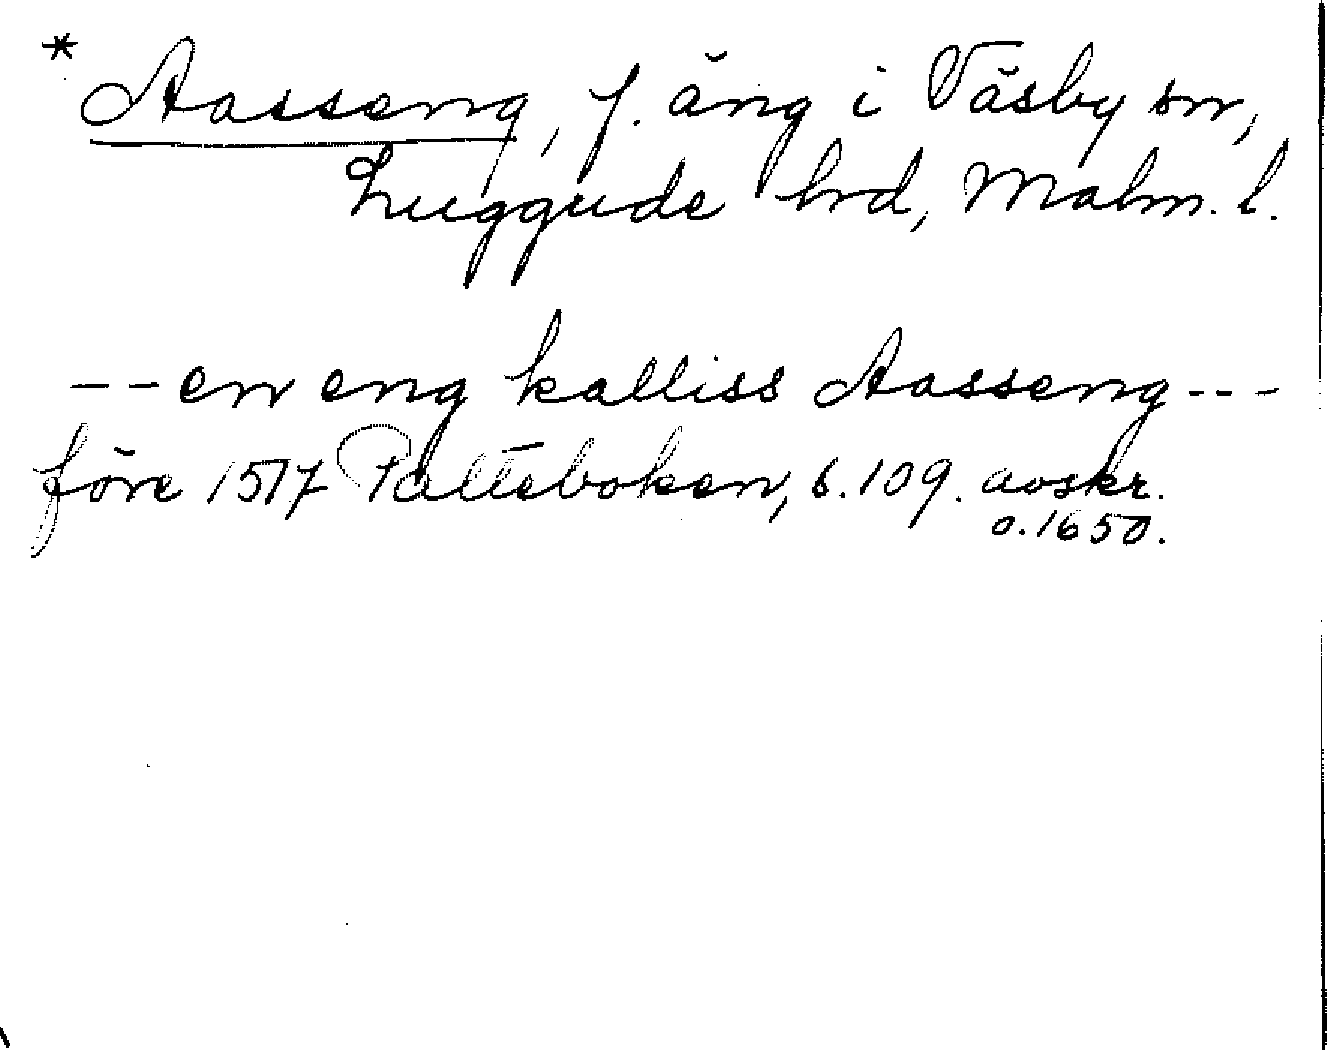 * Aasseng, f. äng i Väsby sn,
Luggude hrd, Malm. l.
-- en eng kalliss Aasseng ---
före 1517 Palteboken, s. 109. avskr.
o. 1650.